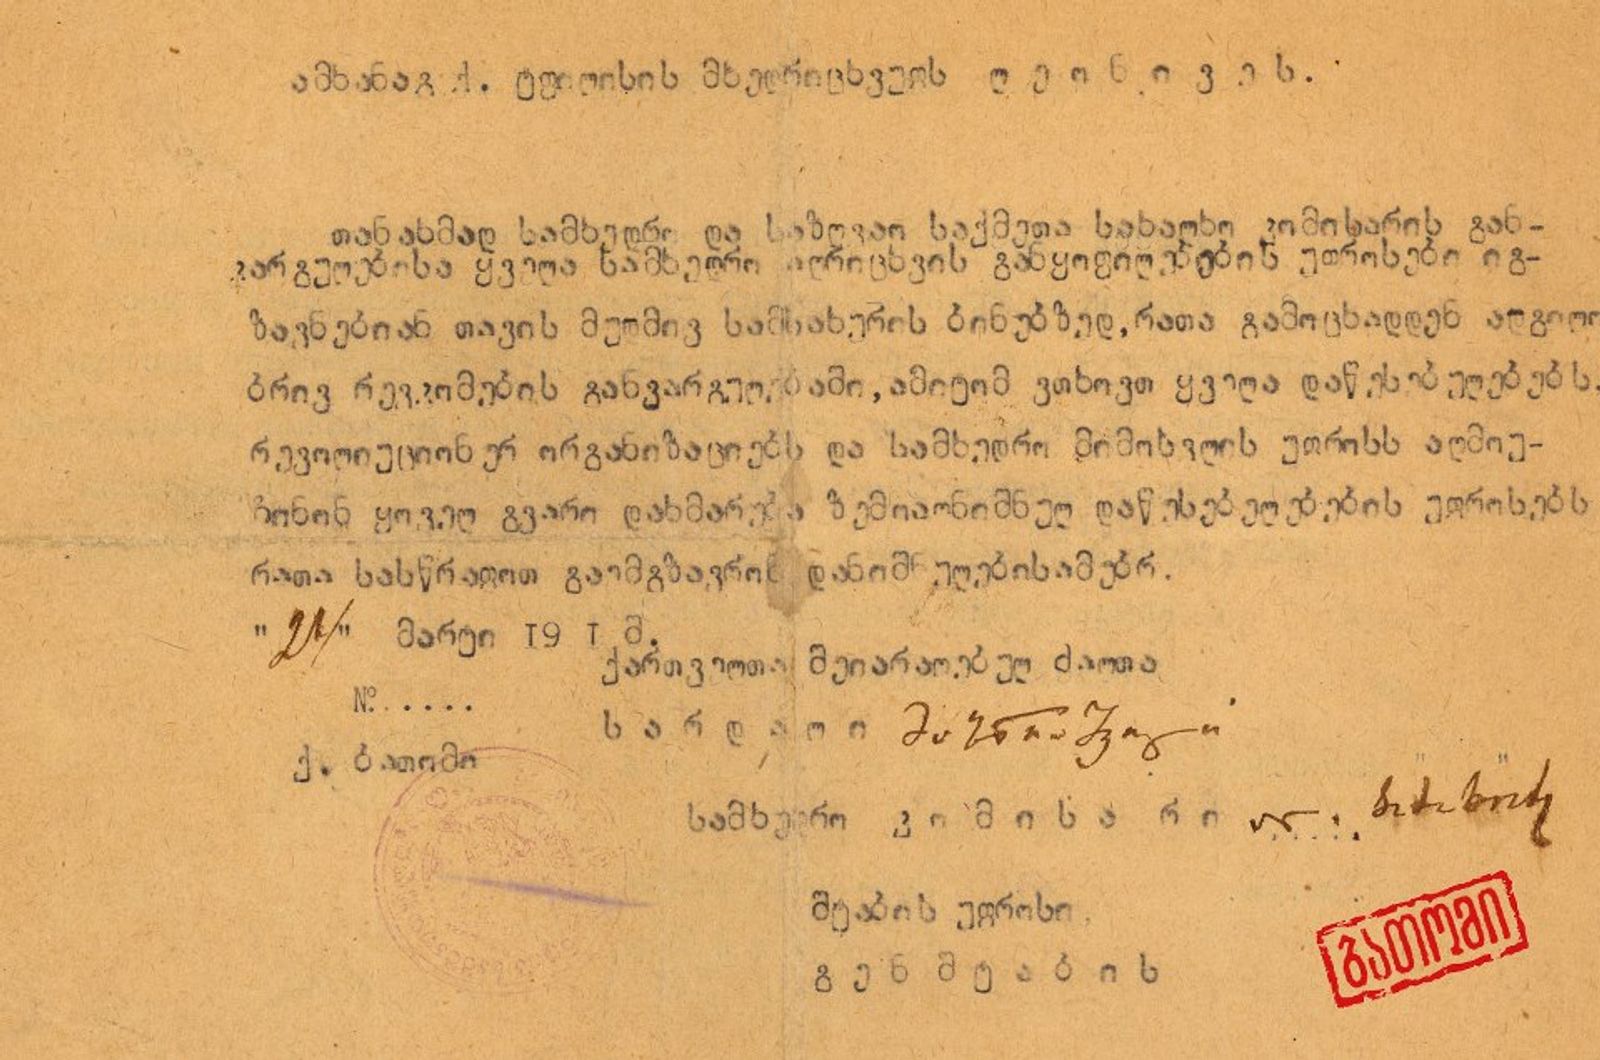 ამხანაგ ქ. ტფილისის მხედრიცხველს ლ ე ო ნ ი ვ ე ს .
თანახმად სამხედრო და საზღვაო საქმეთა სახალხო კომისარის გან-
კარგულებისა ყველა სამხედრო აღრიცხვის განყოფილებების უფროსები იგ-
ზავნებიან თავის მუდმივ სამსახურის ბინებზედ, რათა გამოცხადდენ ადგილო
ბრივ რევკომების განკარგულებაში, ამიტომ ვთხოვთ ყველა დაწესებულებებს,
რევოლიუციონერ ორგანიზაციებს და სამხედრო მიმოსვლის უფროსს აღმოუ-
ჩინონ ყოველ გვარი დახმარება ზემოაღნიშნულ დაწესებულებების უფროსებს
რათა სასწრაფოთ გაემგზავრონ დანიშნულებისამებრ.
" 21/" მარტი 19 1 წ.
ქართველთა შეიარაღებულ ძალთა
№.....
ს ა რ დ ა ლ ი მაზნიაშვილი
ქ. ბათომი
სამხედრო კ ო მ ი ს ა რ ი
შტაბის უფროსი,
გ ე ნ შ ტ ა ბ ი ს
ბათომი